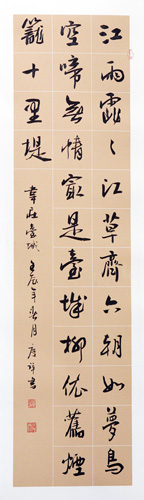 江雨霏〻江草齊六朝如夢鳥
空啼無情最是臺城柳依舊煙
籠十里堤
韋莊臺城 壬辰年春月 彥祥書